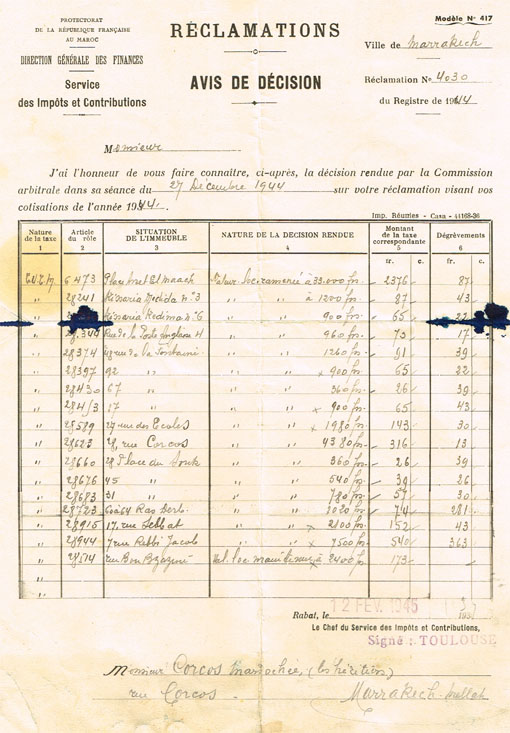 PROTECTORAT
DE LA RÉPUBLIQUE FRANÇAISE
AU MAROC
DIRECTION GÉNÉRALE DES FINANCES
Service
des Impôts et Contributions
RÉCLAMATIONS
AVIS DE DÉCISION
Modèle No 417
Ville de Marrakech
Réclamation No 4030
du Registre de 1944
Monsieur
J'ai l'honneur de vous faire connaître, ci-après, la décision rendue par la Commission
arbitrale dans sa séance du 27 Décembre 1944 sur votre réclamation visant vos
cotisations de l'année 1944.
Imp. Réunies - Casa - 41168-36
Nature de la taxe 1 Article du rôle 2 SITUATION DE L'IMMEUBLE 3 NATURE DE LA DECISION RENDUE 4 Montant de la taxe correspondante 5 Dégrèvements 6
fr. c. fr. c.
6473 Place à 33.000 fr. 2376 87
" 28241 Kissaria No 3 " " à 1200 fr. 87 43
" Kissaria No 6 " " 900 fr. 65 22
" Rue de la Poste 4 " " 960 fr. 17
" 28374 rue de la " " 1260 fr. 91 39
" 28397 92 " " " 900 fr. 65 22
" 28430 67 " " " 360 fr. 26 39
" 17 " " " 900 fr. 65 43
" 28589 27 rue des Ecoles " " 1980 fr. 143 30
" 28623 28, rue Corcos " " 4380 fr. 316 13
" 28660 28 Place du Souk " " 360 fr. 26 39
" 28676 45 " " " 540 fr. 39 26
" 28683 31 " " " 780 fr. 57 30
" 28723 Derb " " 1020 fr. 74 281
" 28915 17, rue " " 2100 fr. 152 43
" 28944 7 rue Rebbi Jacob " " 7500 fr. 540 363
" rue Val. loc. 2400 fr. 173
"
"
Rabat, le 12 FEV. 1945 193
Le Chef du Service des Impôts et Contributions,
Signé : TOULOUSE
Monsieur Corcos Mardochée, (les héritiers)
rue Corcos. Marrakech-Mellah